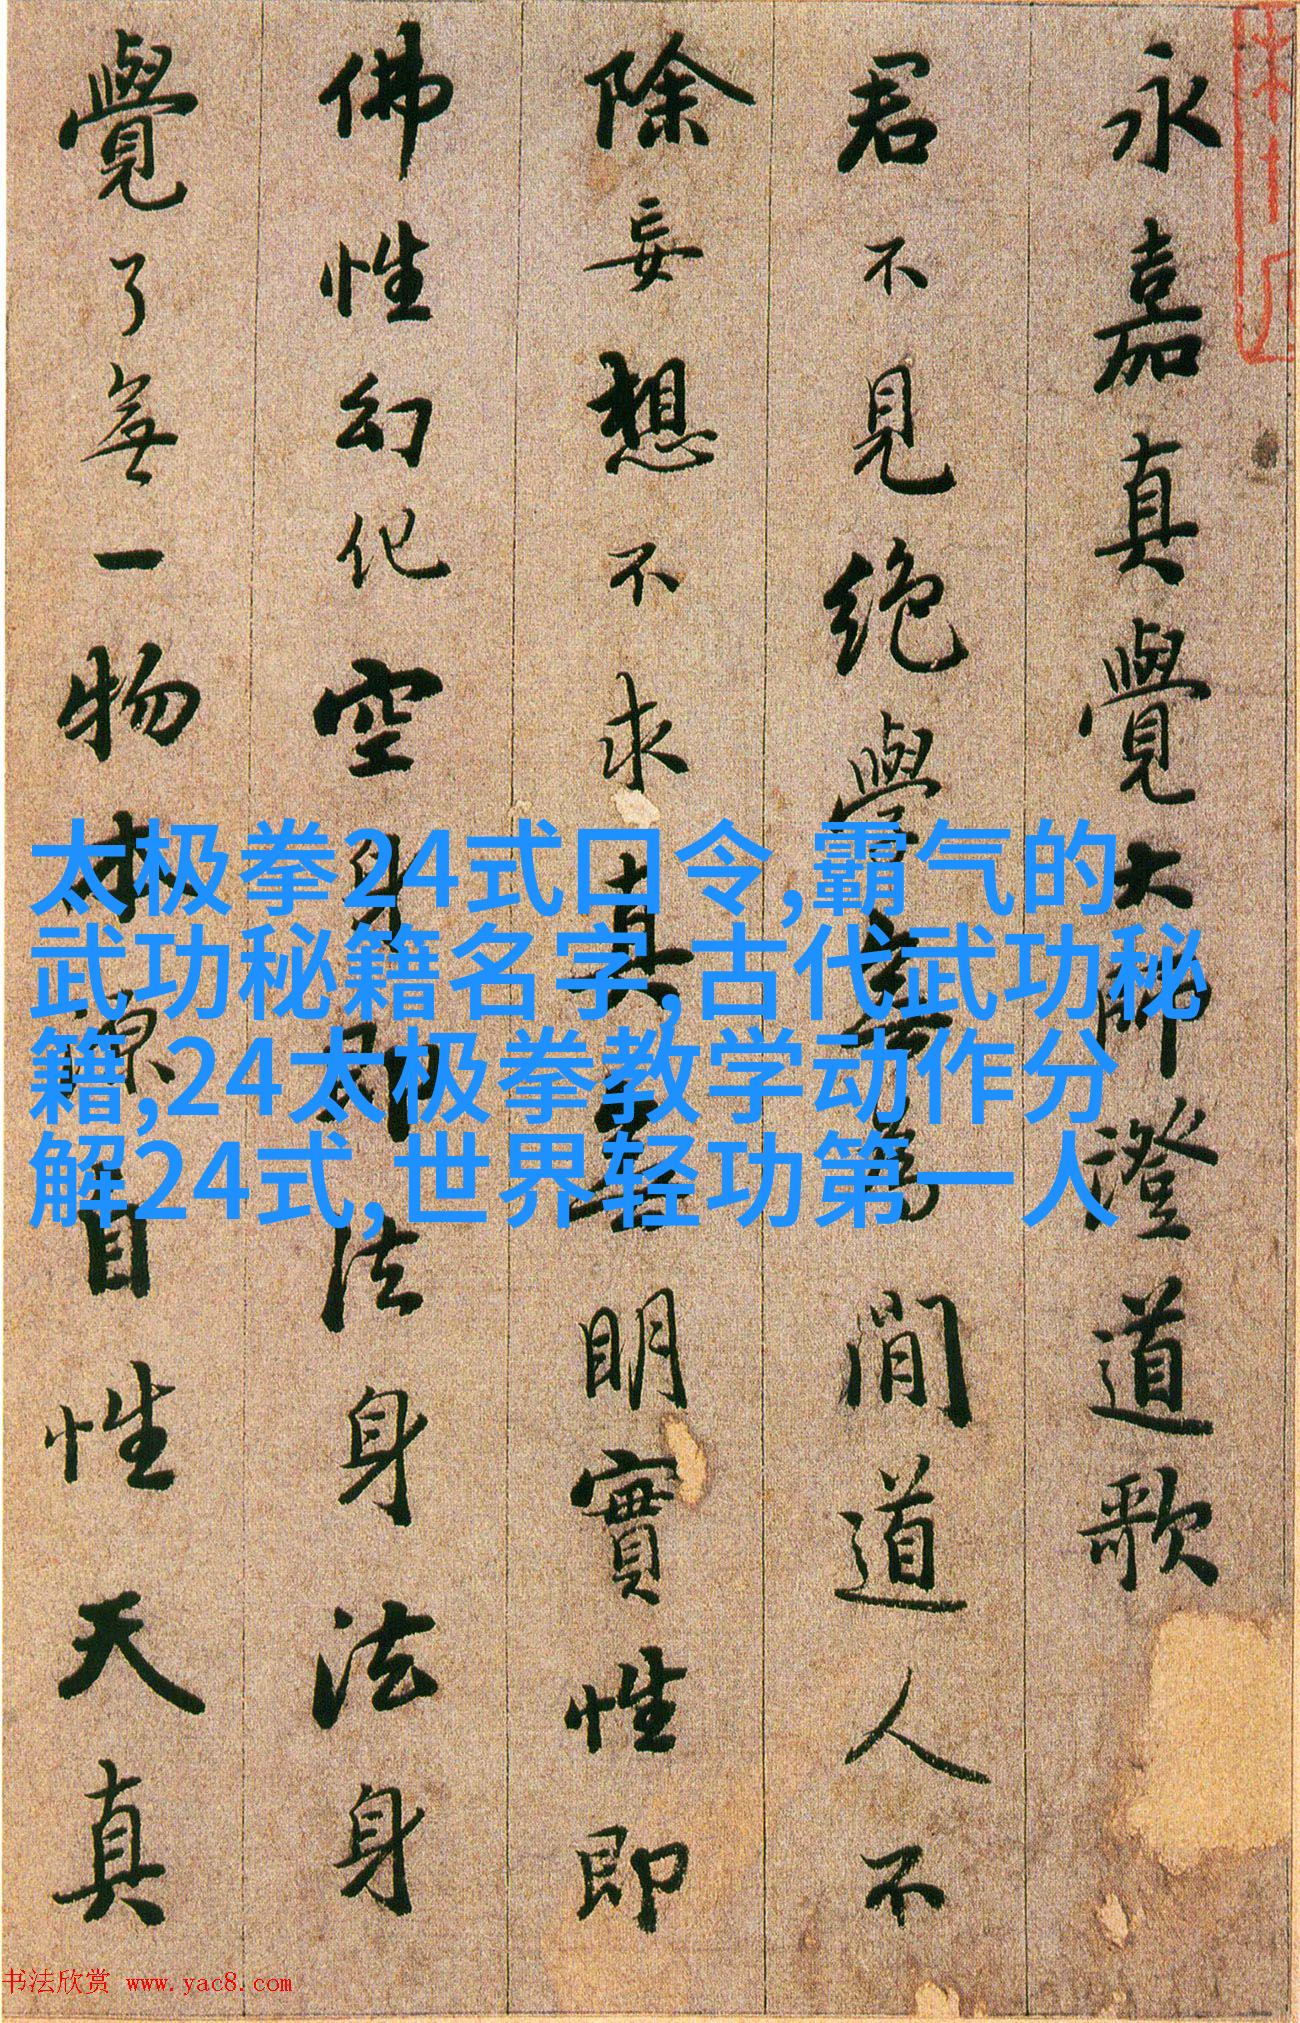 永嘉真覺大師證道歌
君不見絕學無為閒道人不
除妄想不求真無明實性即
佛性幻化空身即法身法身
覺了無一物本源自性天真
太极拳24式口令,霸气的
武功秘籍名字,古代武功秘
籍,24太极拳教学动作分
解24式,世界轻功第一人
书法欣赏 www.yac8.com